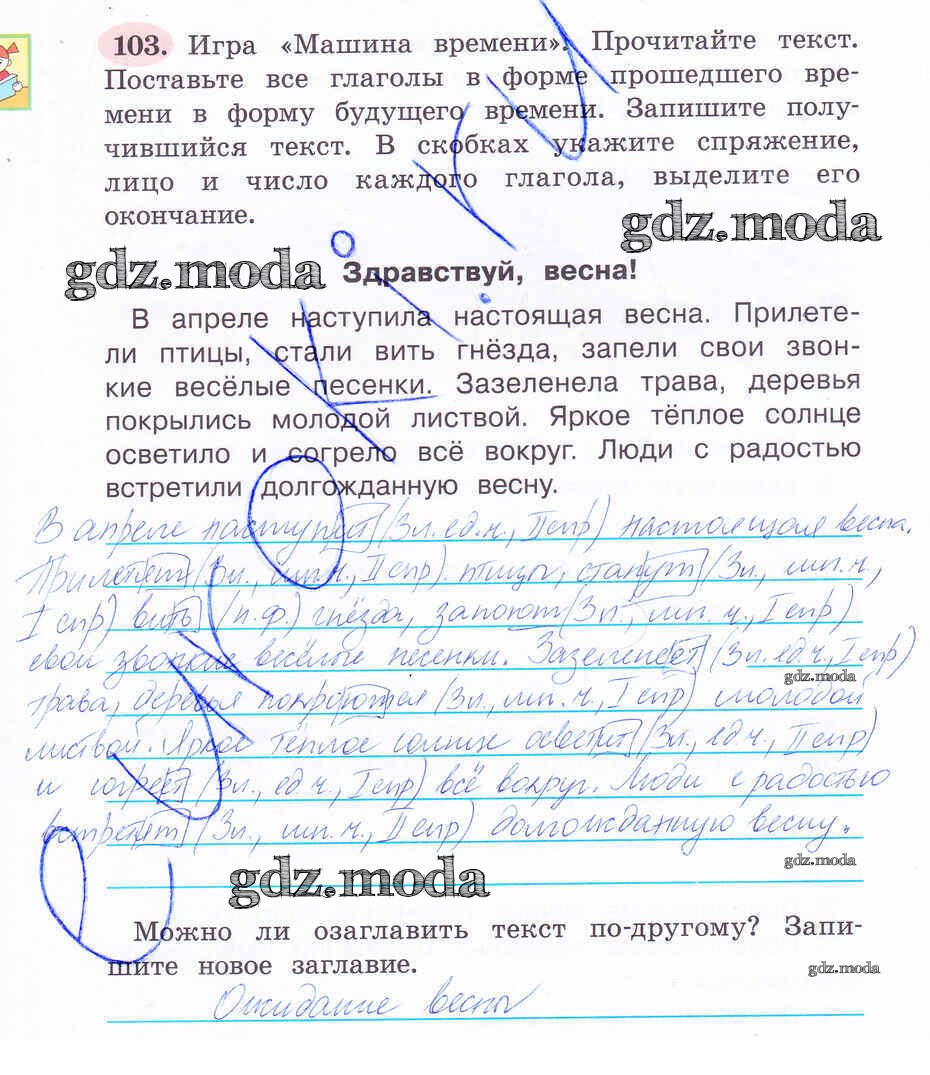 103. Игра «Машина времени». Прочитайте текст.
Поставьте все глаголы в форме прошедшего вре-
мени в форму будущего времени. Запишите полу-
чившийся текст. В скобках укажите спряжение,
лицо и число каждого глагола, выделите его
окончание.
gdz.moda
gdz.moda
Здравствуй, весна!
В апреле наступила настоящая весна. Прилете-
ли птицы, стали вить гнёзда, запели свои звон-
кие весёлые песенки. Зазеленела трава, деревья
покрылись молодой листвой. Яркое тёплое солнце
осветило и согрело всё вокруг. Люди с радостью
встретили долгожданную весну.
В апреле наступит (3 л. ед. ч., II спр) настоящая весна.
Прилетят (3 л., мн. ч., II спр) птицы, станут (3 л., мн. ч,
I спр) вить (н. ф.) гнёзда, запоют (3 л., мн. ч., I спр)
свои звонкие весёлые песенки. Зазеленеет (3 л. ед. ч, I спр)
gdz.moda
трава, деревья покроются (3 л., мн. ч., I спр) молодой
листвой. Яркое тёплое солнце осветит (3 л., ед. ч., II спр)
и согреет (3 л., ед. ч., I спр) всё вокруг. Люди с радостью
встретят (3 л., мн. ч., II спр) долгожданную весну.
gdz.moda
gdz.moda
Можно ли озаглавить текст по-другому? Запи-
шите новое заглавие.
gdz.moda
Ожидание весны